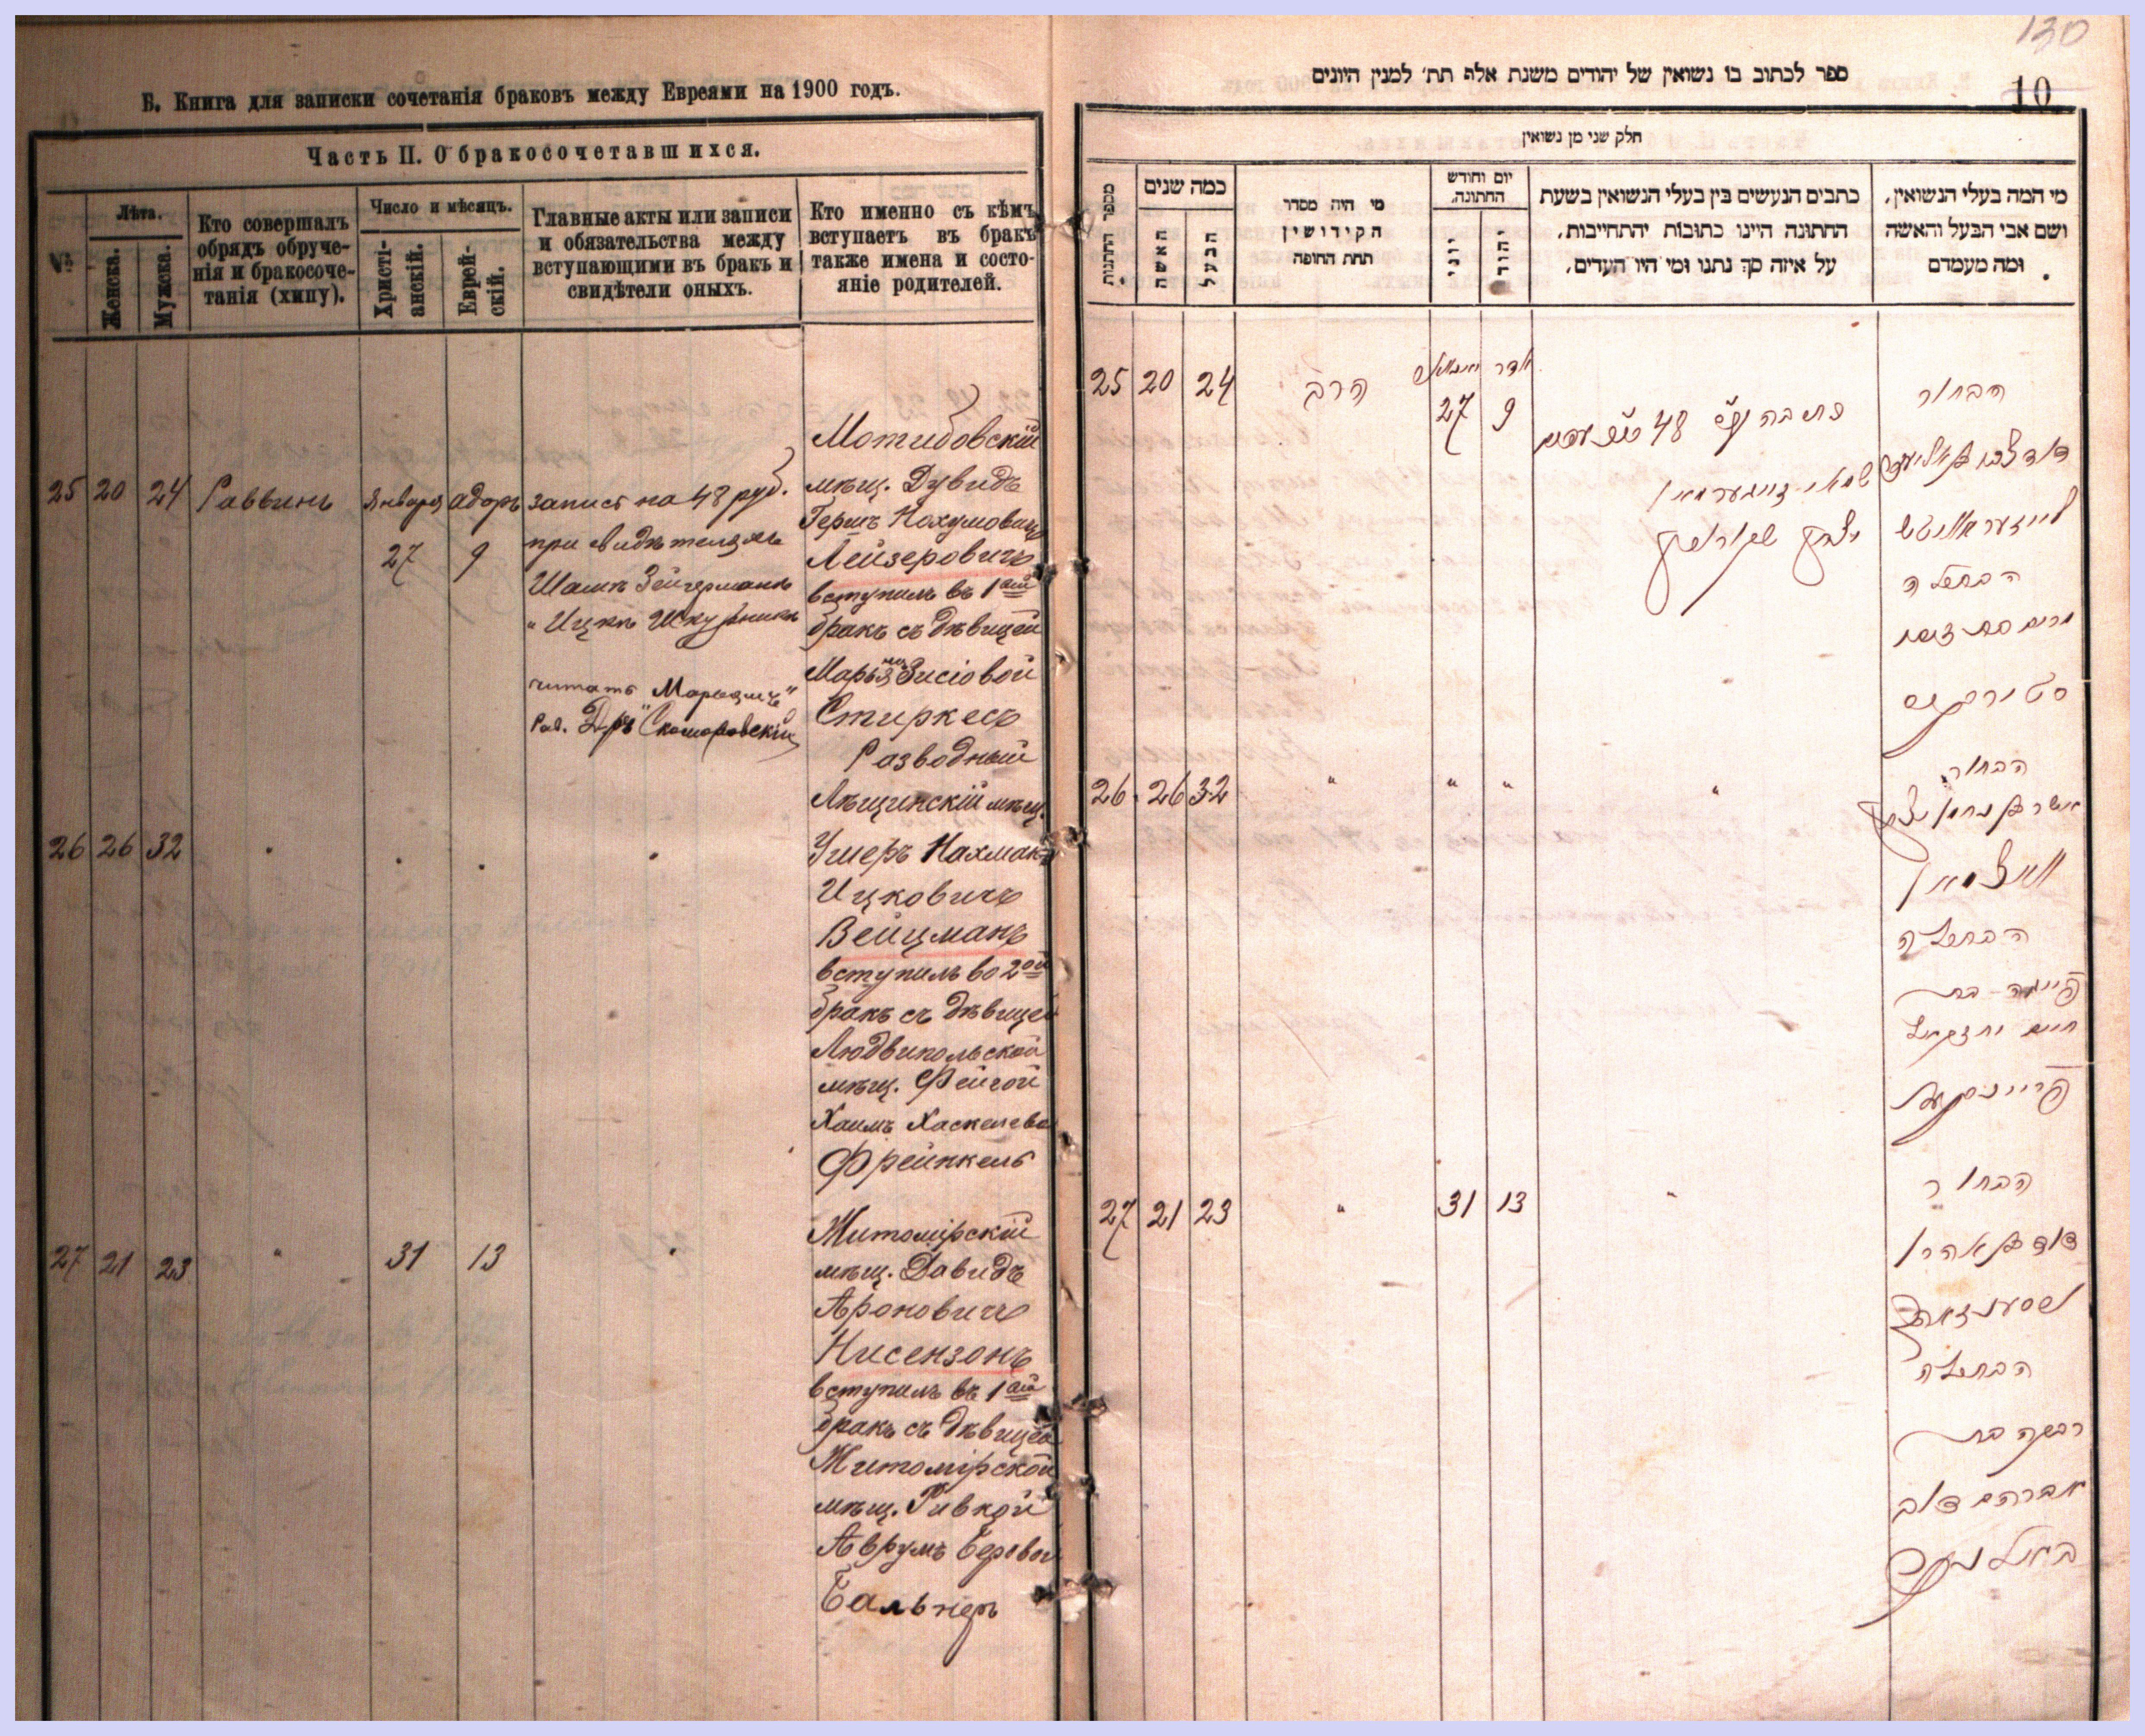 Б. Книга для записки сочетанія браковъ между Евреями на 1900 годъ.
Часть II. О бракосочетавшихся.
Лѣта.
Женска.
Мужска.
Кто совершалъ
обрядъ обруче-
нія и бракосоче-
танія (хипу).
Число и мѣсяцъ.
Христі-
анскій.
Еврей-
скій.
Главные акты или записи
и обязательства между
вступающими въ бракъ и
свидѣтели оныхъ.
Кто именно съ кѣмъ
вступаетъ въ бракъ
также имена и состо-
яніе родителей.
25 20 24 Раввинъ Января Адоръ
27 9
запись на 48 руб.
при свидѣтеляхъ
Шамкъ Зейгерманъ
" Ицкъ Шкурникъ
читать Марьямъ"
Рав. Д-ръ Скоморовскій
мѣщ. Дувидъ
Гершъ Нохумовичъ
Лейзеровичъ
вступилъ въ 1ый
бракъ съ дѣвицей
Зисіовой
Стиркесъ
26 26 32
Разводный
Лѣщинскій мѣщ.
Ушеръ Нахманъ
Ицковичъ
Вейцманъ
вступилъ во 2ой
бракъ съ дѣвицей
Людвипольской
мѣщ. Фейгой
Хаимъ Хаскелевой
Фрейнкель
27 21 23 " 31 13
Житомірскій
мѣщ. Давидъ
Ароновичъ
Нисензонъ
вступилъ въ 1ый
бракъ съ дѣвицей
Житомірской
мѣщ. Ривкой
Аврумъ Беровой
Бальнеръ
130
10
ספר לכתוב בו נשואין של יהודים משנת אלף תת׳ למנין היונים
חלק שני מן נשואין
מספר החתנות
כמה שנים
האשה
הבעל
מי היה מסדר
הקידושין
תחת החופה
יום וחודש
החתונה.
יוני
יהודי
כתבים הנעשים בין בעלי הנשואין בשעת
החתונה היינו כתובות יהתחייבות,
על איזה סך נתנו ומי היו העדים,
מי המה בעלי הנשואין,
ושם אבי הבעל והאשה
ומה מעמדם
25 20 24 הרב
27 9 אדר
48
הבחור
הבתולה
סטירקיס
26 26 32 " " " "
הבחור
וואיצמאן
הבתולה
פייגה בת
חיים יחזקאל
פריינקעל
27 21 23 " 31 13 "
הבחור
דוד בן אהרן
הבתולה
רבקה בת
אברהם דוב